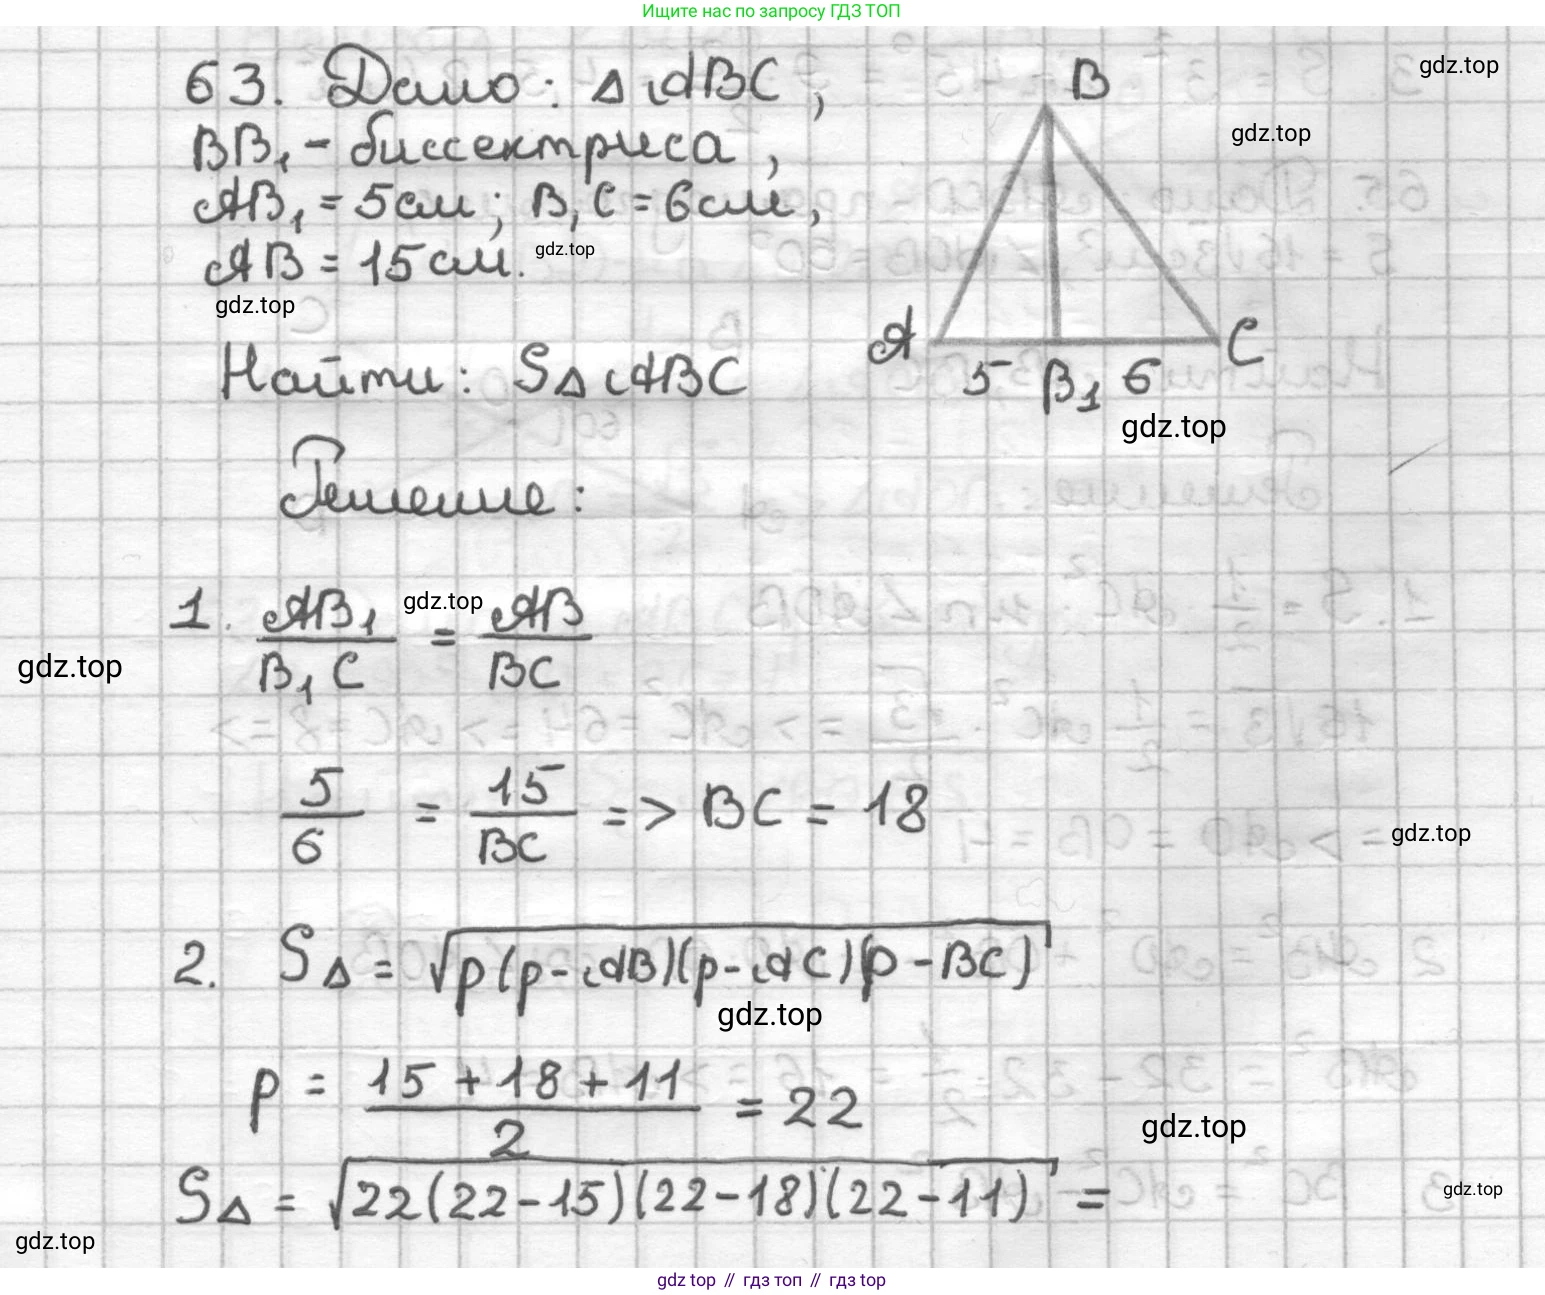 Ищите нас по запросу ГДЗ ТОП
63. Дано: △ABC,
gdz.top
B
BB₁ - биссектриса,
gdz.top
AB₁ = 5см; B₁C = 6см,
AB = 15см.
gdz.top
gdz.top
A
C
Найти: S△ABC
5 B₁ 6
gdz.top
Решение:
1. AB₁/B₁C = AB/BC
gdz.top
gdz.top
5/6 = 15/BC => BC = 18
gdz.top
2. S△ = √p(p-AB)(p-AC)(p-BC)
gdz.top
p = (15+18+11)/2 = 22
gdz.top
S△ = √22(22-15)(22-18)(22-11) =
gdz.top
gdz.top
gdz top // гдз топ // гдз top